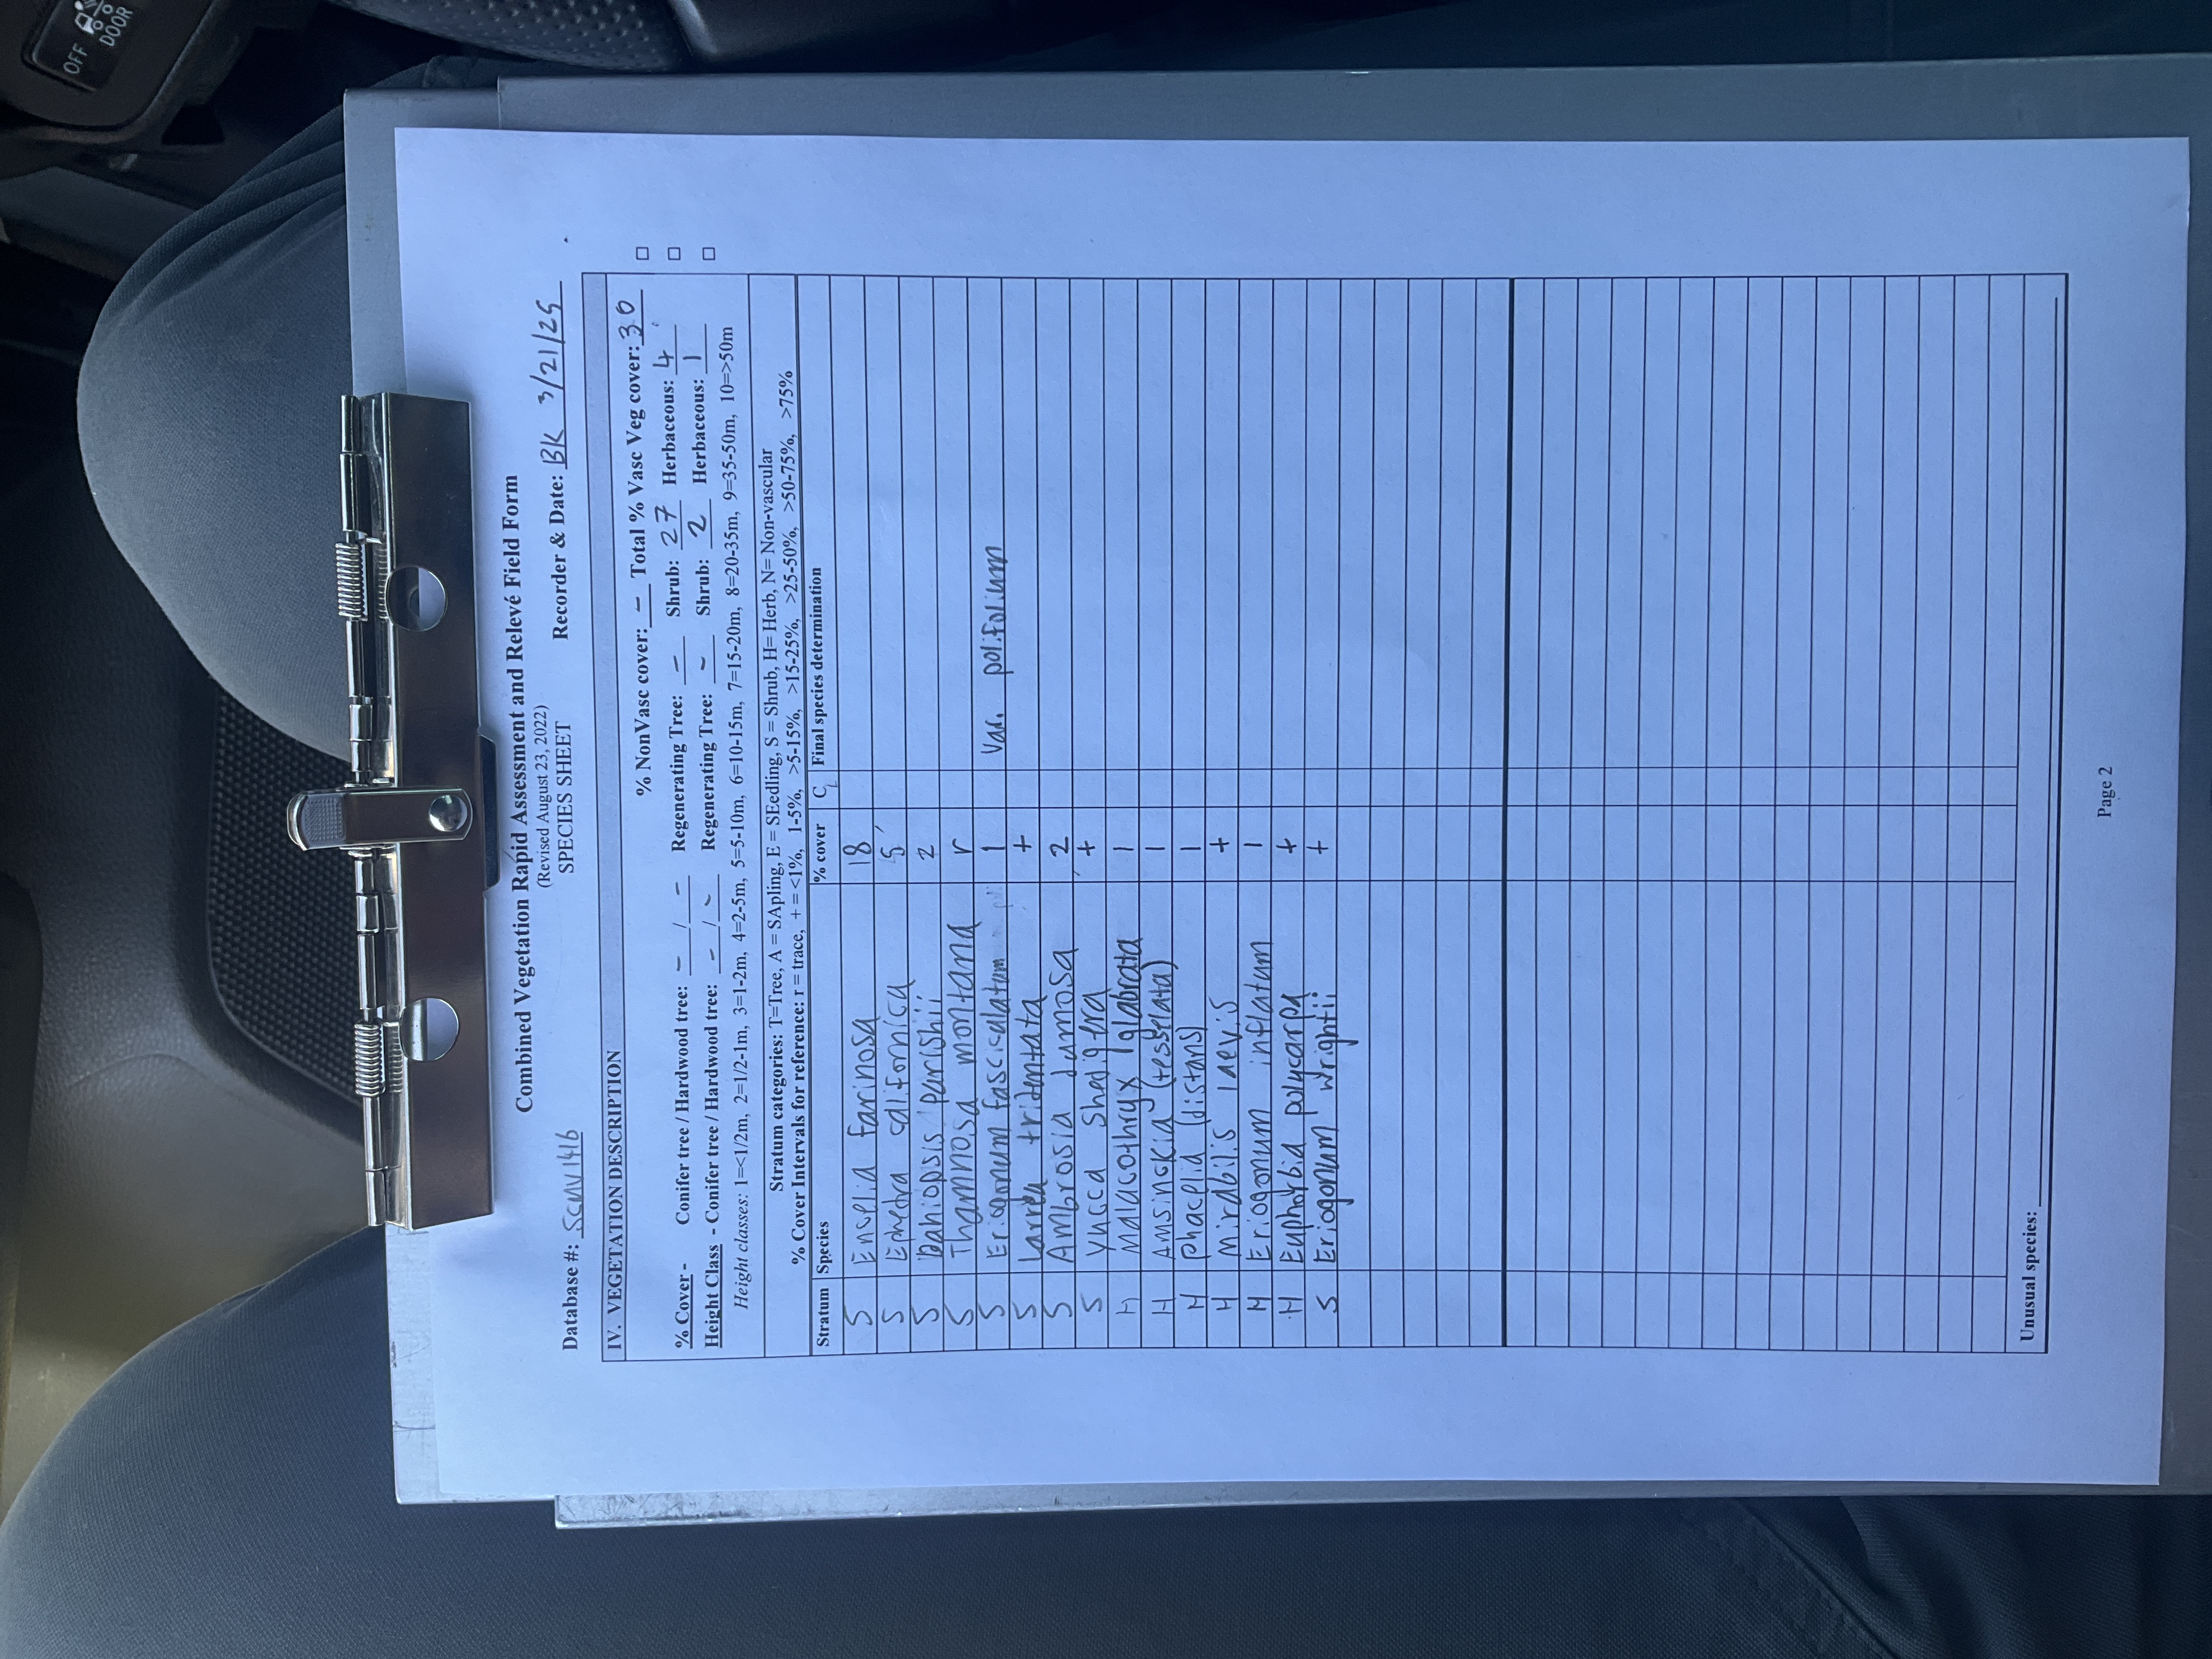 OFF
DOOR
Combined Vegetation Rapid Assessment and Relevé Field Form
(Revised August 23, 2022)
SPECIES SHEET
Database #: SCUV1416 Recorder & Date: BK 3/21/25
IV. VEGETATION DESCRIPTION
% NonVasc cover: - Total % Vasc Veg cover: 30 □
% Cover - Conifer tree / Hardwood tree: - / - Regenerating Tree: - Shrub: 27 Herbaceous: 4 □
Height Class - Conifer tree / Hardwood tree: - / - Regenerating Tree: - Shrub: 2 Herbaceous: 1 □
Height classes: 1=<1/2m, 2=1/2-1m, 3=1-2m, 4=2-5m, 5=5-10m, 6=10-15m, 7=15-20m, 8=20-35m, 9=35-50m, 10=>50m
Stratum categories: T=Tree, A = SApling, E = SEedling, S = Shrub, H= Herb, N= Non-vascular
% Cover Intervals for reference: r = trace, + = <1%, 1-5%, >5-15%, >15-25%, >25-50%, >50-75%, >75%
Stratum Species % cover C Final species determination
S Encelia farinosa 18
S Ephedra californica 5
S Bahiopsis parishii 2
S Thamnosa montana r
S Eriogonum fasciculatum 1 var. polifolium
S Larrea tridentata +
S Ambrosia dumosa 2
S Yucca shedigera +
H Malacothryx glabrata 1
H Amsinckia (tesselata) 1
H Phacelia (distans) 1
H Mirabilis laevis +
H Eriogonum inflatum 1
H Euphorbia polycarpa +
S Eriogonum wrightii +
Unusual species:
Page 2